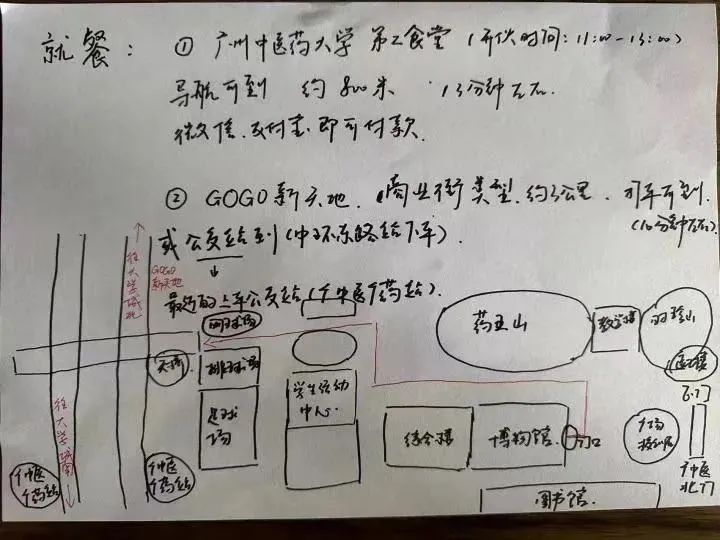 就餐: ① 广州中医药大学 第二食堂 (开伙时间: 11:00-13:00)
导航可到 约800米 13分钟左右.
微信.支付宝.即可付款.
② GOGO新天地. 商业街类型. 约3公里. 打车可到.
(10分钟左右)
或公交站到(中环东路站下车).
最近的上车公交站(广中医药站).
往大学城北
GOGO新天地
往大学城南
天桥
网球场
排球场
足球场
学生活动中心.
药王山
教学楼
综合楼
博物馆.
门口
图书馆.
广中医药站
广中医药站
广中医北门